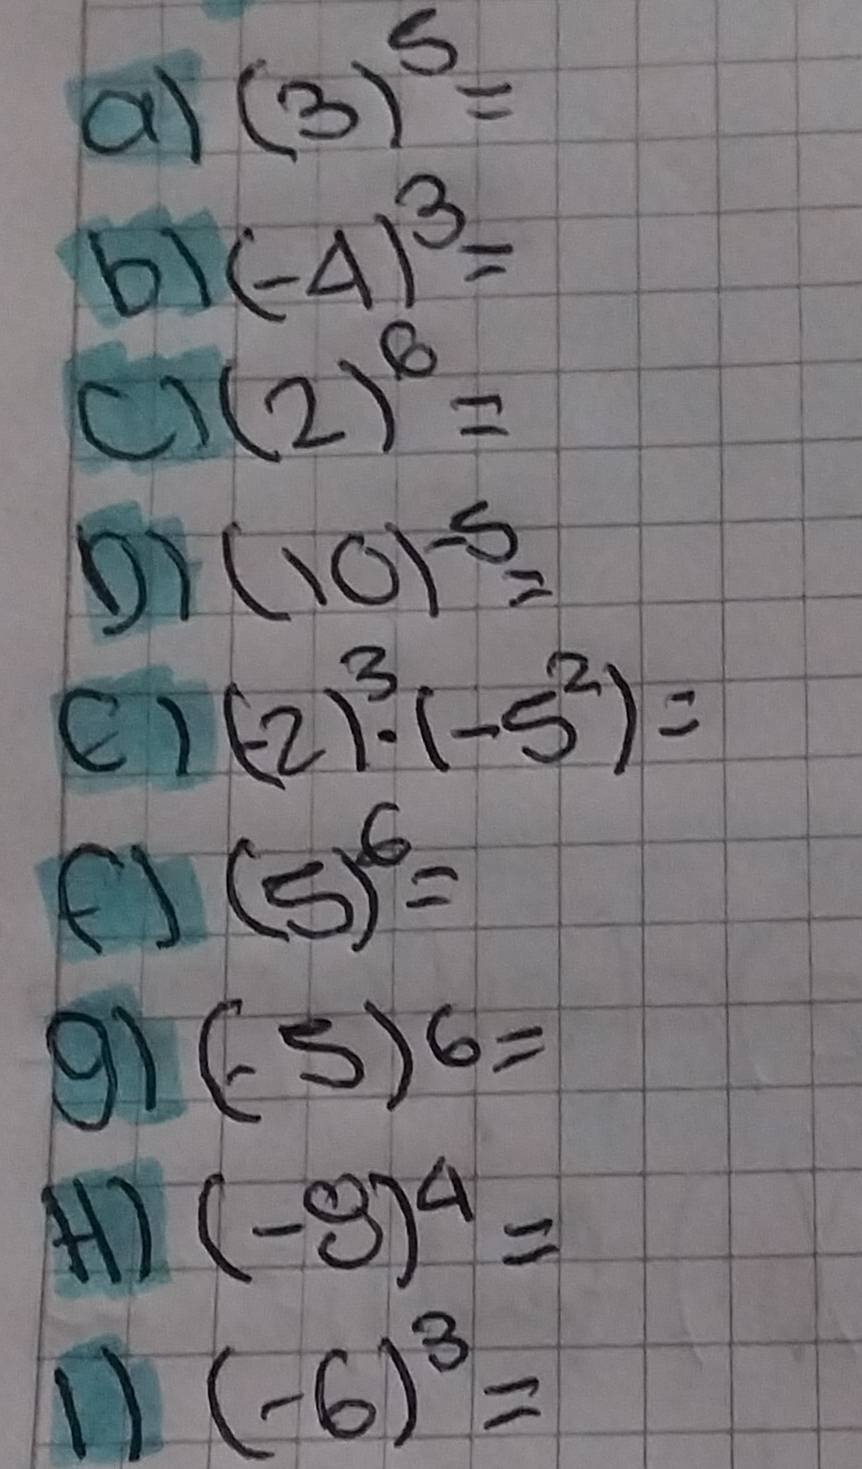 a) (3)⁵=
b) (-4)³=
c) (2)⁶=
D) (10)⁻⁵=
e) (-2)³·(-5²)=
f) (5)⁶=
g) (-5)⁶=
H) (-9)⁴=
I) (-6)³=